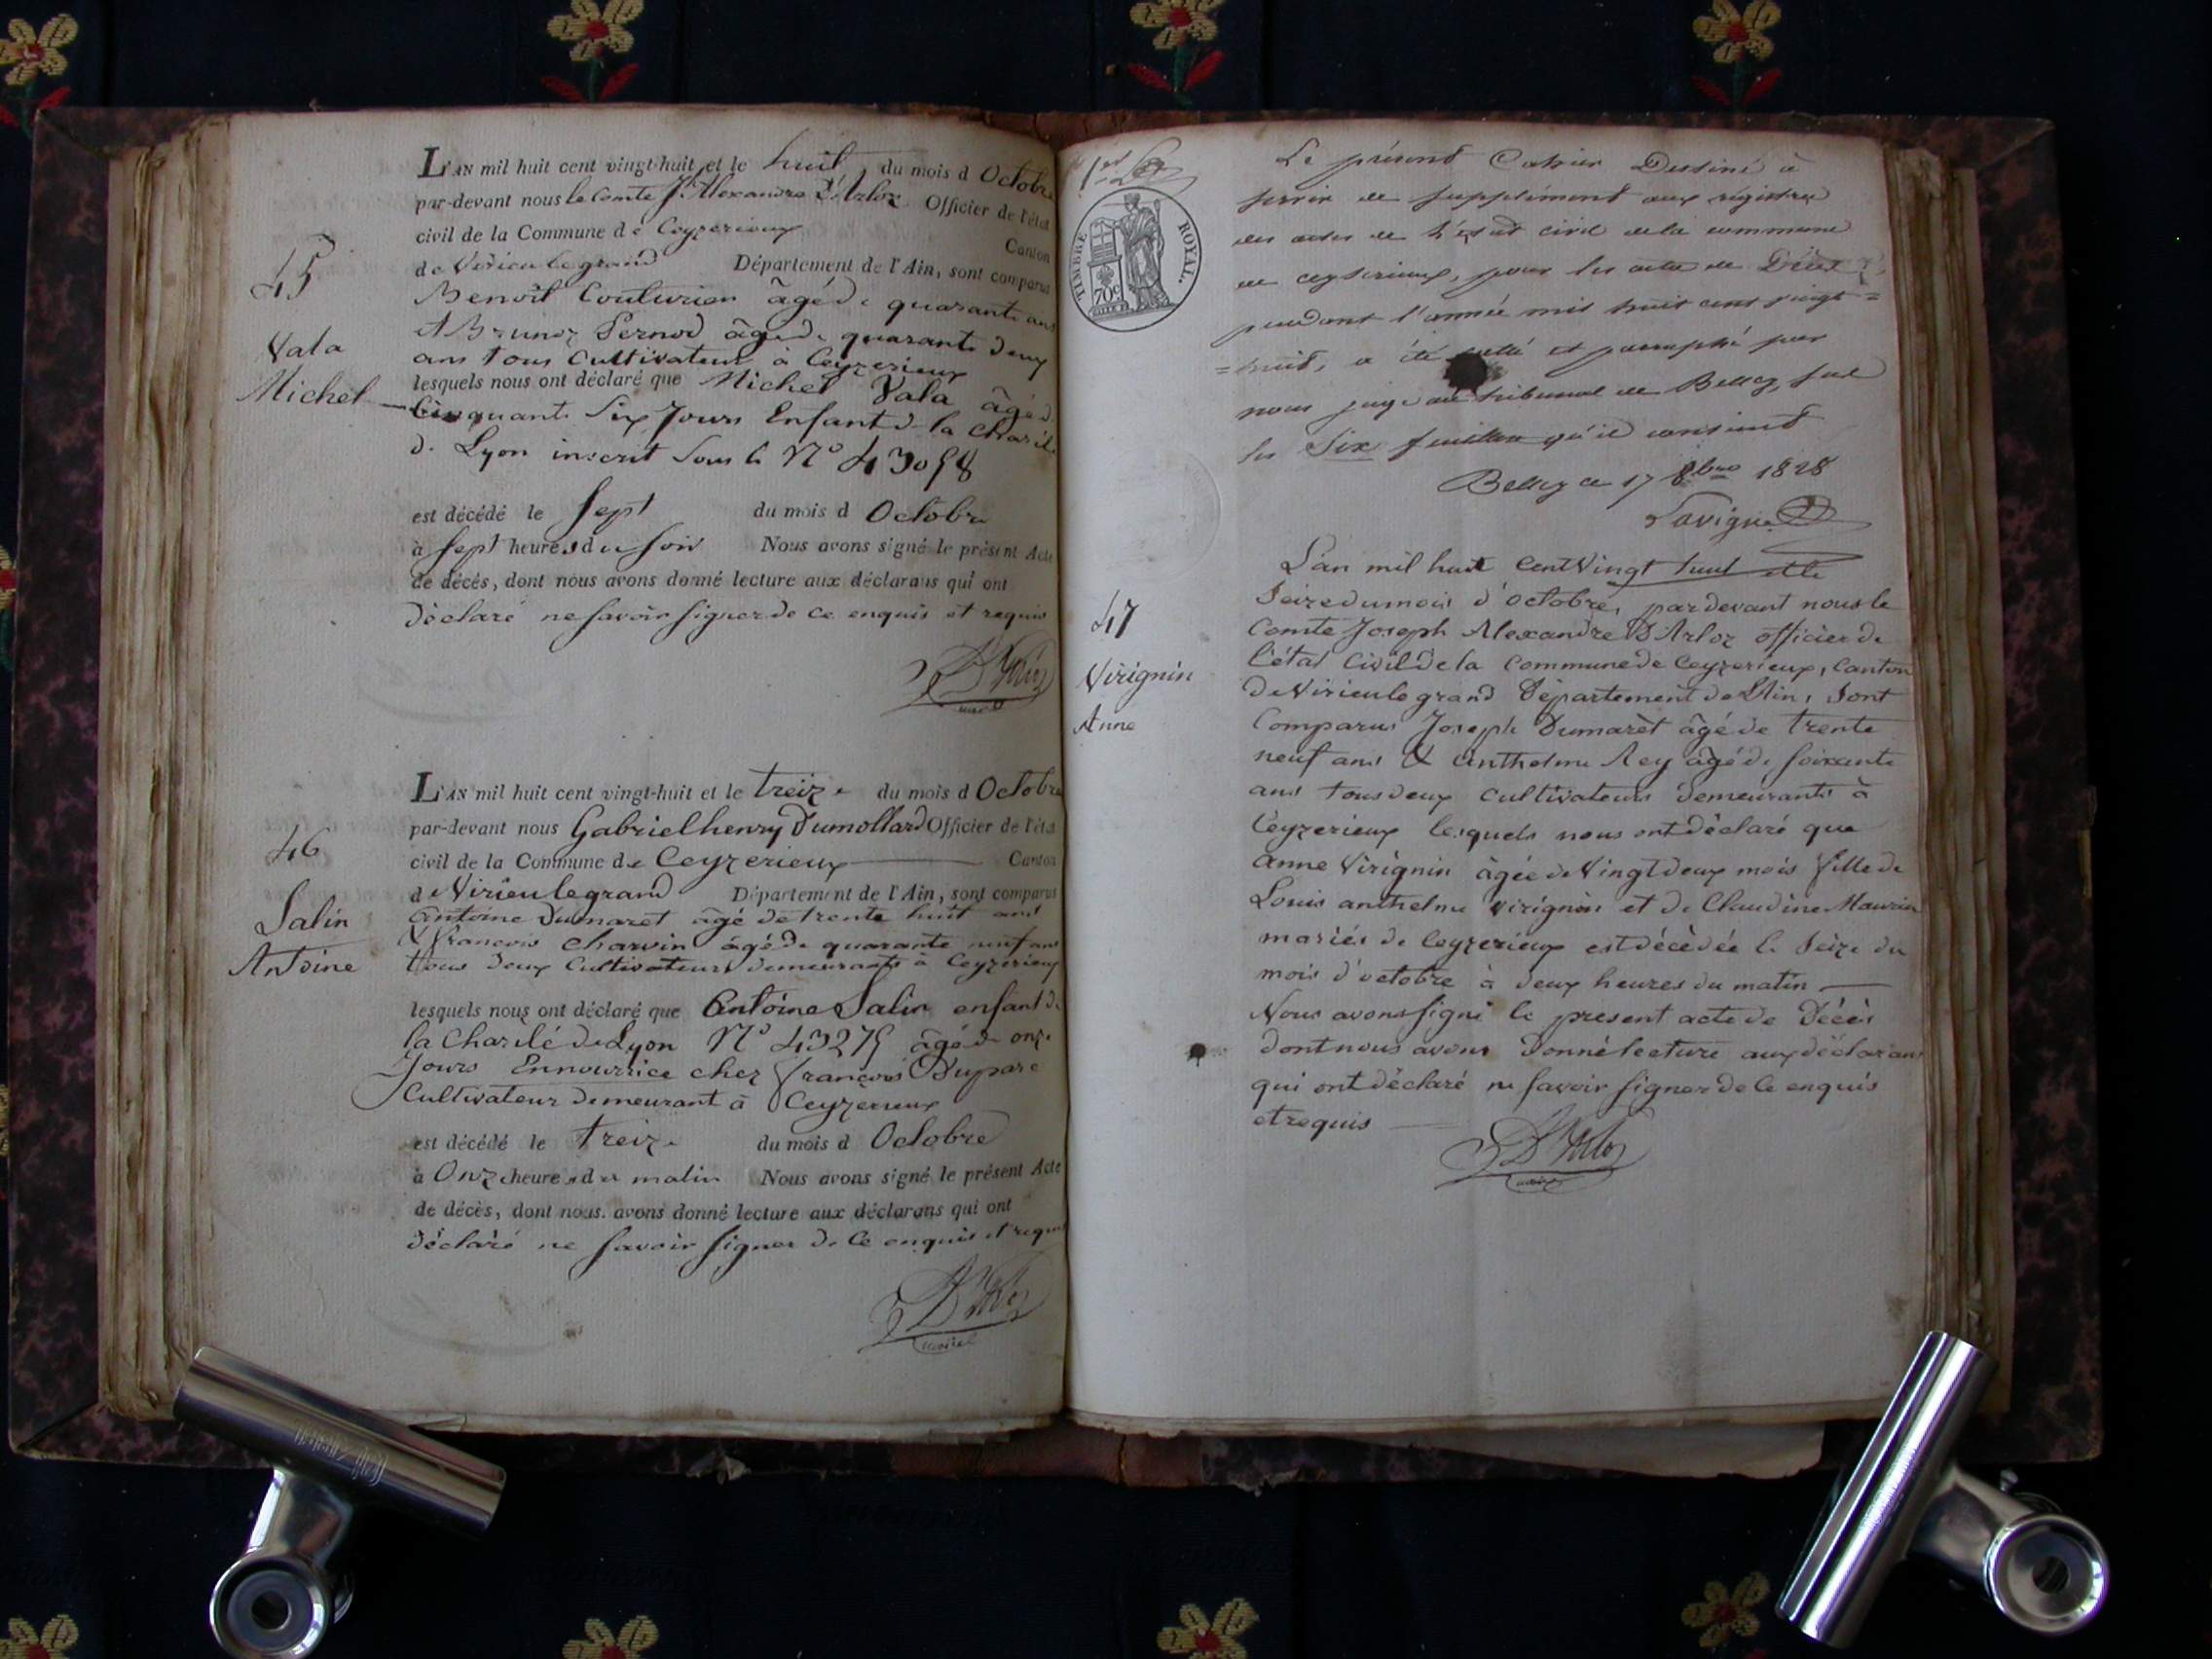 45
Vala
Michel
L'AN mil huit cent vingt-huit et le huit du mois d Octobre
par-devant nous le Comte J. Alexandre D'Arloz Officier de l'état
civil de la Commune de Ceyzerieux Canton
de Virieu le grand Département de l'Ain, sont comparus
Benoit Couturier âgé de quarante ans
et Brunoz Pernod âgé de quarante deux
ans tous Cultivateurs à Ceyzerieux
lesquels nous ont déclaré que Michel Vala âgé de
Cinquante Six Jours Enfant de la Charité
de Lyon inscrit sous le N° 43058
est décédé le Sept du mois d Octobre
à Sept heures du soir Nous avons signé le présent Acte
de décès, dont nous avons donné lecture aux déclarans qui ont
déclaré ne savoir signer de ce enquis et requis
46
Salin
Antoine
L'AN mil huit cent vingt-huit et le treize du mois d Octobre
par-devant nous Gabriel henry Dumollard Officier de l'état
civil de la Commune de Ceyzerieux Canton
d Virieu le grand Département de l'Ain, sont comparus
Antoine Dumaret âgé de trente huit ans
& francois Charvin âgé de quarante neuf ans
tous deux Cultivateurs demeurants à Ceyzerieux
lesquels nous ont déclaré que Antoine Salin enfant de
la Charité de Lyon N° 43275 âgé de onze
Jours En nourrice chez François Duparc
Cultivateur demeurant à Ceyzerieux
est décédé le treize du mois d Octobre
à Onze heures du matin Nous avons signé le présent Acte
de décès, dont nous avons donné lecture aux déclarans qui ont
déclaré ne savoir signer de ce enquis et requis
TIMBRE ROYAL.
70c
Le présent Cahier Destiné à
servir de supplément aux régistres
des actes de l'état civil de la commune
de ceyserieux, pour les actes de Décès
pendant l'année mil huit cent vingt=
=huit, a été cotté et paraphé par
nous juge au tribunal de Belley, sur
les Six feuillets qu'il contient
Belley ce 17 8bre 1828
Lavigne
47
Virignin
Anne
L'an mil huit Cent Vingt huit et le
Seize du mois d'octobre, par devant nous le
Comte Joseph Alexandre D'Arloz officier de
l'état Civil de la Commune de Ceyzerieux, Canton
de Virieu le grand Département de l'Ain, Sont
Comparus Joseph Dumarêt âgé de trente
neuf ans & Anthelme Rey âgé de soixante
ans tous deux Cultivateurs demeurants à
Ceyzerieux lesquels nous ont déclaré que
Anne Virignin âgée de Vingt deux mois fille de
Louis anthelme Virignin et de Claudine Maurin
mariés de Ceyzerieux est décédée le Seize du
mois d'octobre à deux heures du matin
Nous avons signé le present acte de Décès
dont nous avons donné lecture aux déclarans
qui ont déclaré ne savoir signer de Ce enquis
et requis